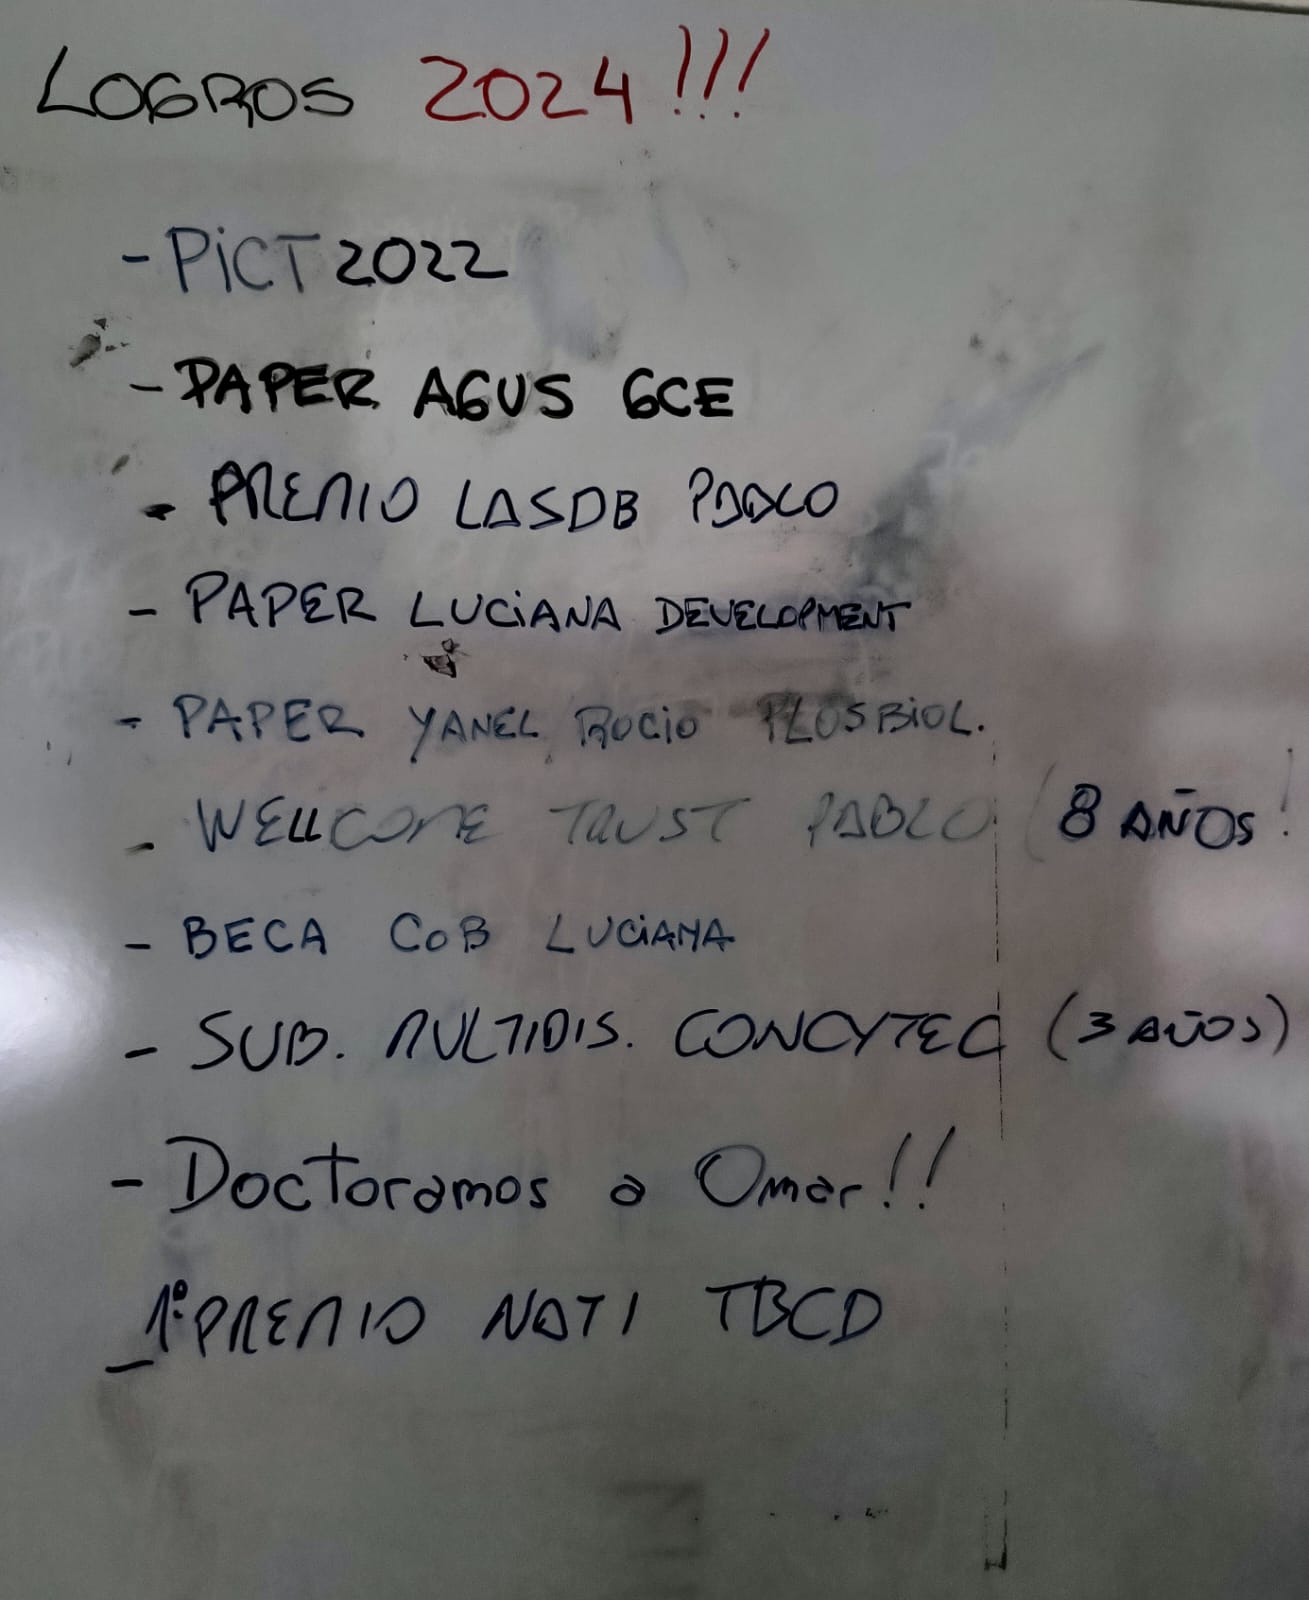 LOGROS 2024!!!
- PiCT 2022
- PAPER AGUS GCE
- PREMIO LASDB PABLO
- PAPER LUCiANA DEVELOPMENT
- PAPER YANEL, ROCiO PLOSBiOL.
- WELLCOME TRUST PABLO (8 AÑOS!
- BECA CoB LUCiANA
- SUB. MULTIDIS. CONCYTEC (3 AÑOS)
- Doctoramos a Omar!!
- 1º PREMIO NATI TBCD